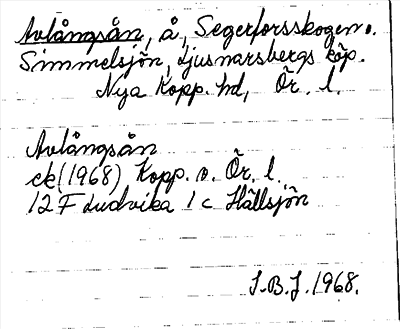 Avlångsån, å, Segerforsskogen o.
Simmelsjön, Ljusnarsbergs köp.
Nya Kopp. hd, Ör. l.
Avlångsån
ek (1968) Kopp. o. Ör. l.
12 F Ludvika 1 c Hällsjön
S.B.J. 1968.